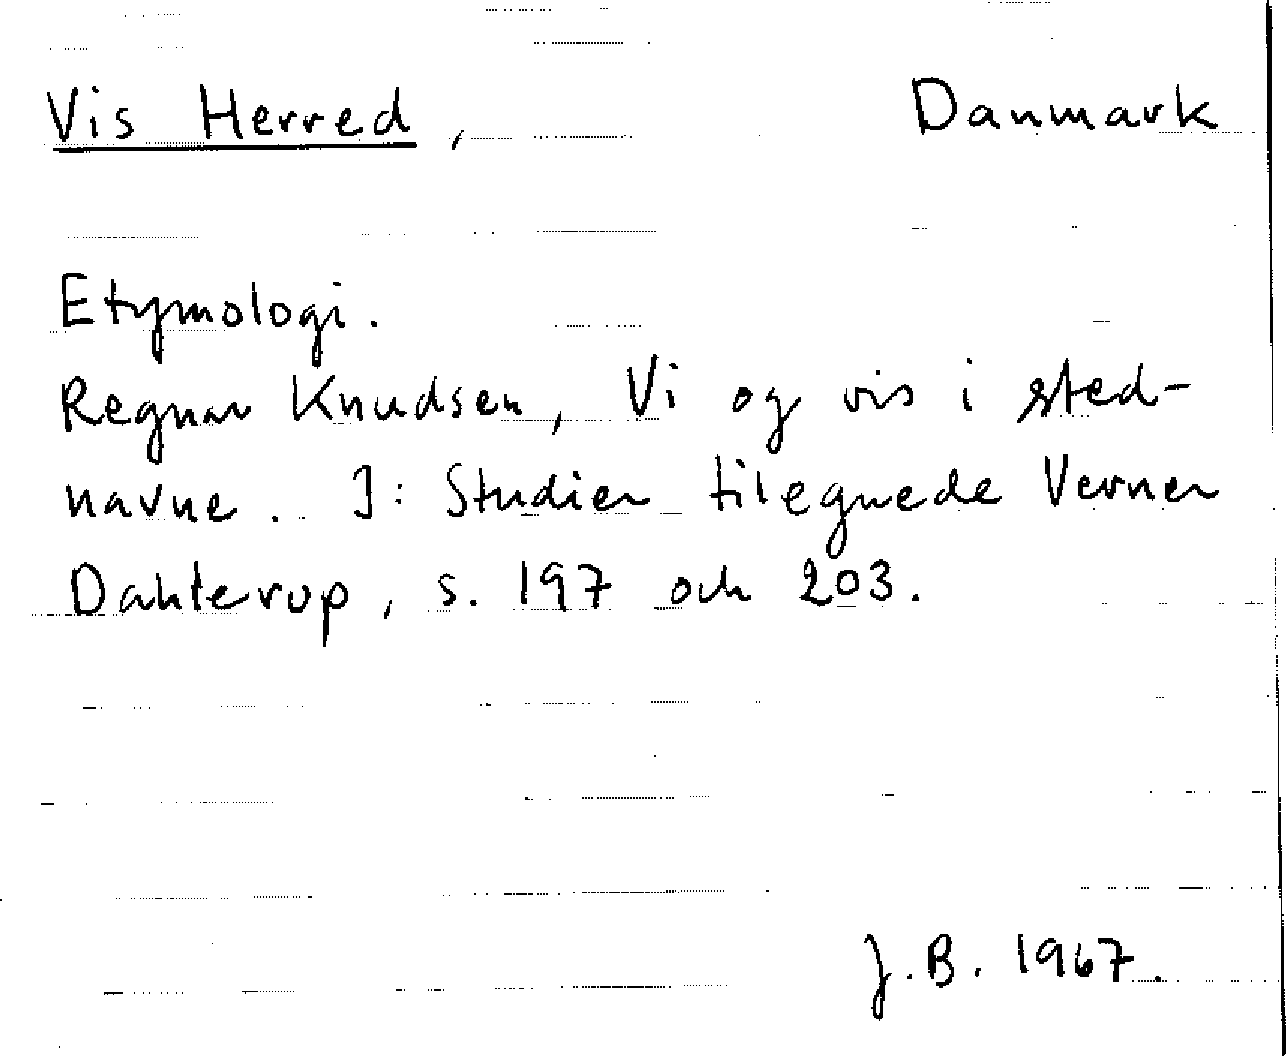 Vis Herred, Danmark
Etymologi.
Regnar Knudsen, Vi og vis i sted-
navne. I: Studier tilegnede Verner
Dahlerup, s. 197 och 203.
J.B. 1967.